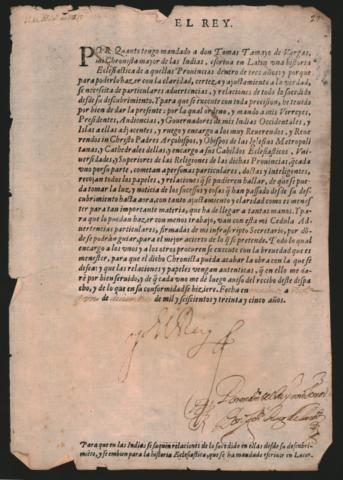 EL REY.
POR Quanto tengo mandado a don Tomas Tamayo de Vargas,
mi Chronista mayor de las Indias, escriua en Latin vna historia
Eclesiastica de aquellas Prouincias dentro de tres años; y porque
para poderlo hazer con la claridad, certeza, y ajustamiento a la verdad,
se necesita de particulares aduertencias, y relaciones de todo lo sucedido
desde su descubrimiento. Y para que se execute con toda precision, he tenido
por bien de dar la presente: por la qual ordeno, y mando a mis Virreyes,
Presidentes, Audiencias, y Gouernadores de mis Indias Occidentales, y
Islas a ellas adjacentes, y ruego y encargo a los muy Reuerendos, y Reue-
rendos in Christo Padres Arçobispos, y Obispos de las Iglesias Metropoli
tanas, y Cathedrales dellas, y encargo a sus Cabildos Eclesiasticos, Vni-
uersidades, y Superiores de las Religiones de las dichas Prouincias, q̃ cada
vno por su parte, cometan a personas particulares, doctas, y inteligentes,
recojan todos los papeles, y relaciones q̃ se pudieren hallar, de que se pue-
da tomar la luz, y noticia de los sucessos y cosas q̃ han passado desde su des-
cubrimiento hasta aora, con tanto ajustamiento y claridad como es menes-
ter para tan importante materia, que ha de llegar a tantas manos. Y pa-
ra que lo puedan hazer con menos trabajo, van con esta mi Cedula Ad-
uertencias particulares, firmadas de mi infrascripto Secretario, por dõ-
de se podrán guiar, para el mejor acierto de lo q̃ se pretende. Todo lo qual
encargo a los vnos y a los otros procuren se execute con la breuedad que es
menester, para que el dicho Chronista pueda acabar la obra con la que se
desea; y que las relaciones y papeles vengan autenticas, q̃ en ello me da-
ré por bien seruido, y de q̃ cada vno me dè luego auiso del recibo deste despa-
cho, y de lo que en su conformidad se hiziere. Fecha en
de mil y seiscientos y treinta y cinco años.
yo el Rey
Para que en las Indias se saquen relaciones de lo sucedido en ellas desde su descubri-
miẽto, y se embien para la historia Eclesiastica, que se ha mandado escriuir en Latin.